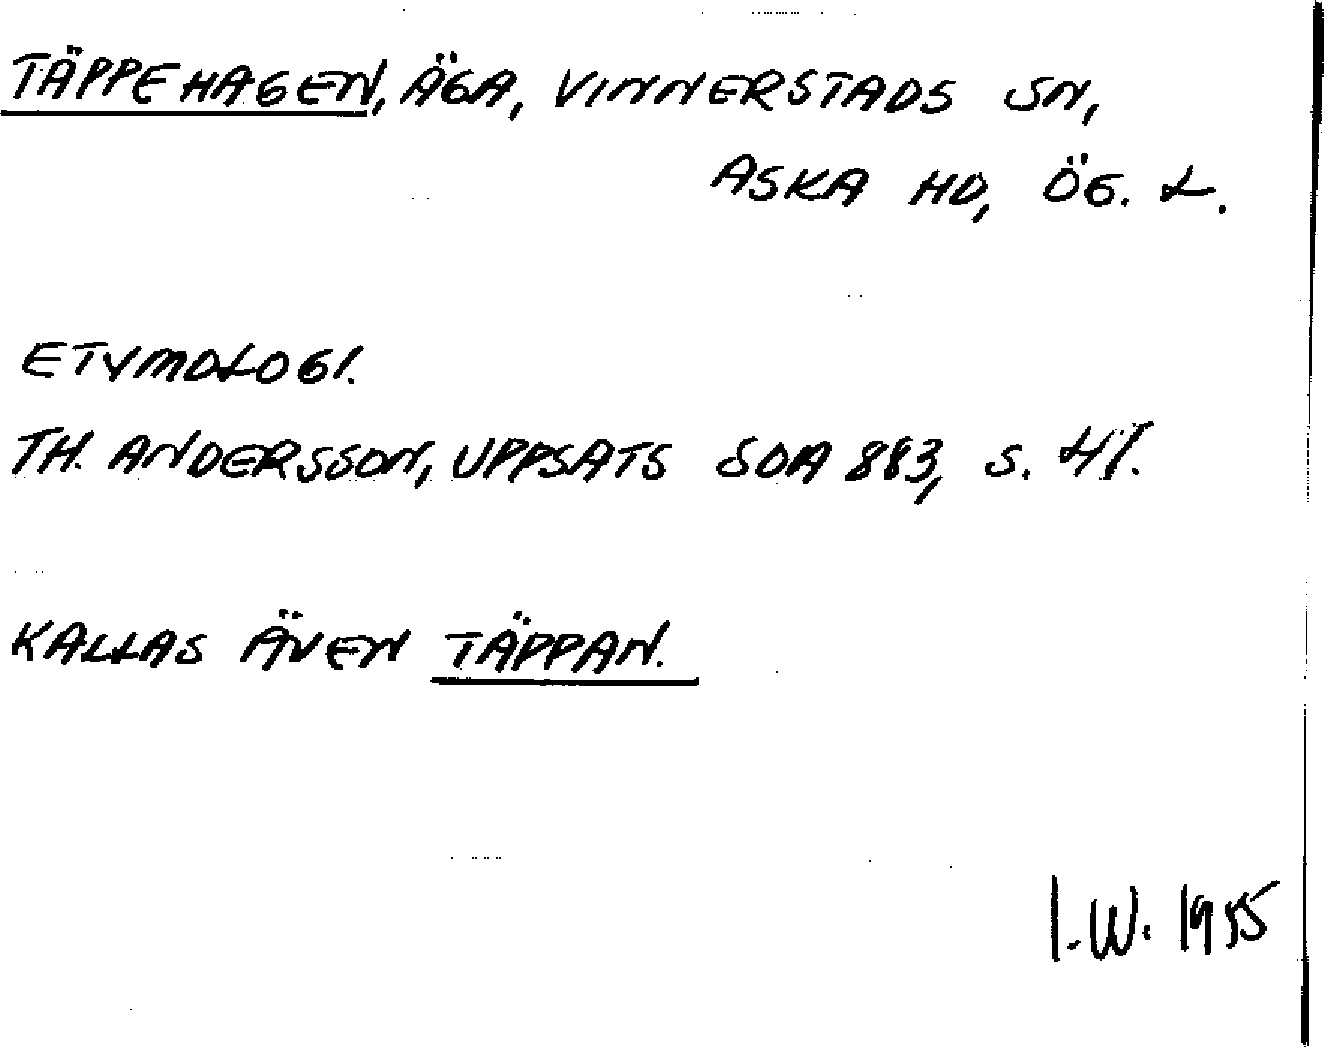 TÄPPEHAGEN, ÄGA, VINNERSTADS SN,
ASKA HD, ÖG. L.
ETYMOLOGI.
TH. ANDERSSON, UPPSATS SOA 883, S. 41.
KALLAS ÄVEN TÄPPAN.
I.W. 1955